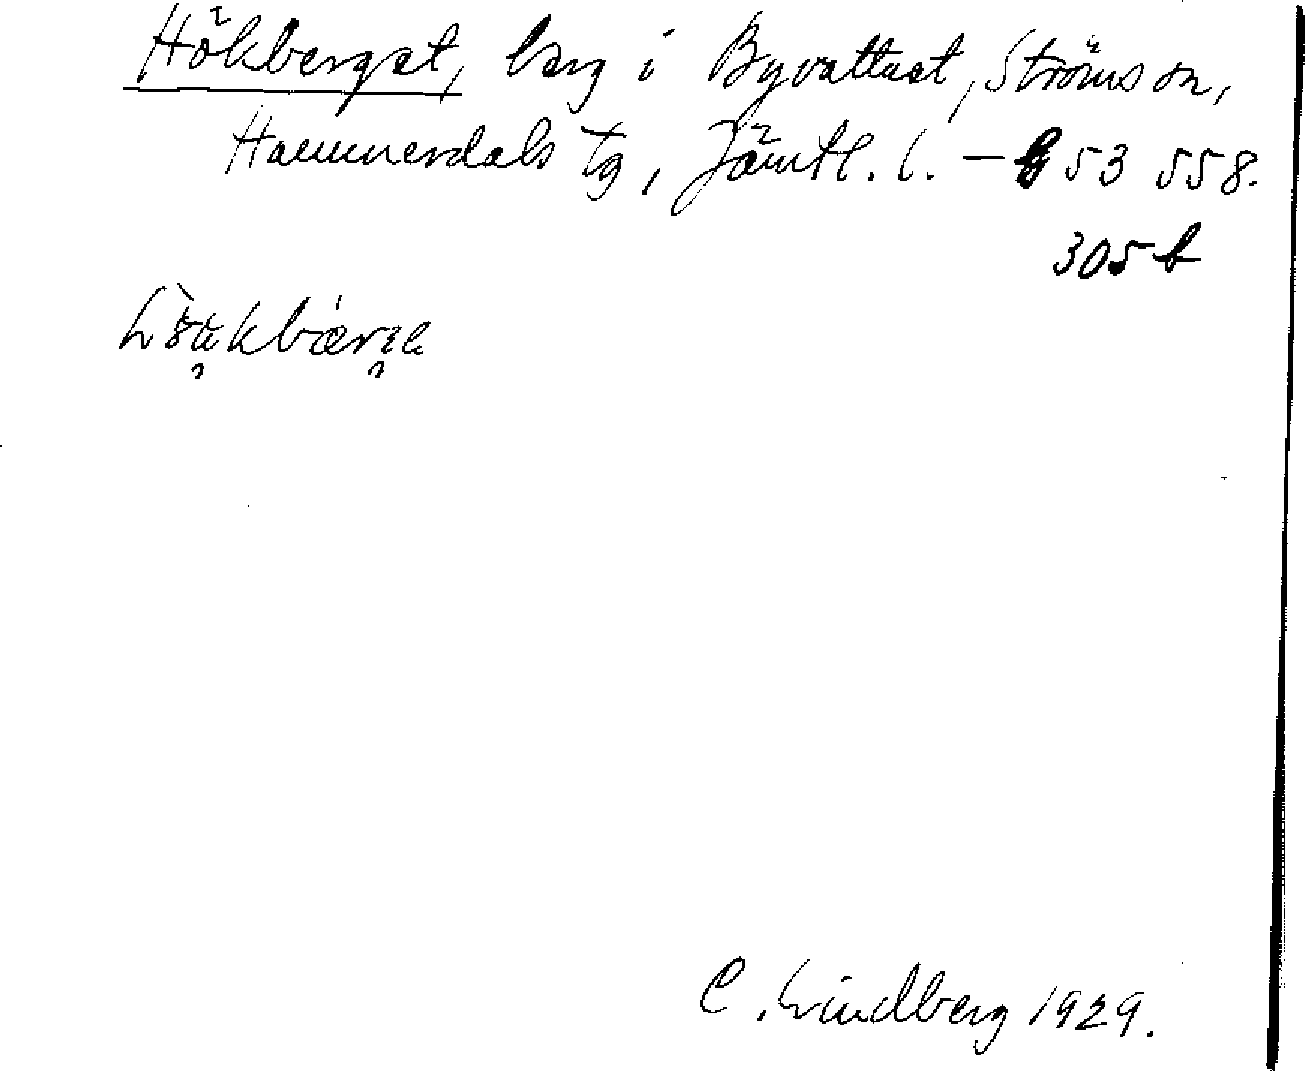 Hökberget, berg i Byvattnet, Ströms sn,
Hammerdals tg, Jämtl. l. – 53 558.
305
C. Lindberg 1929.